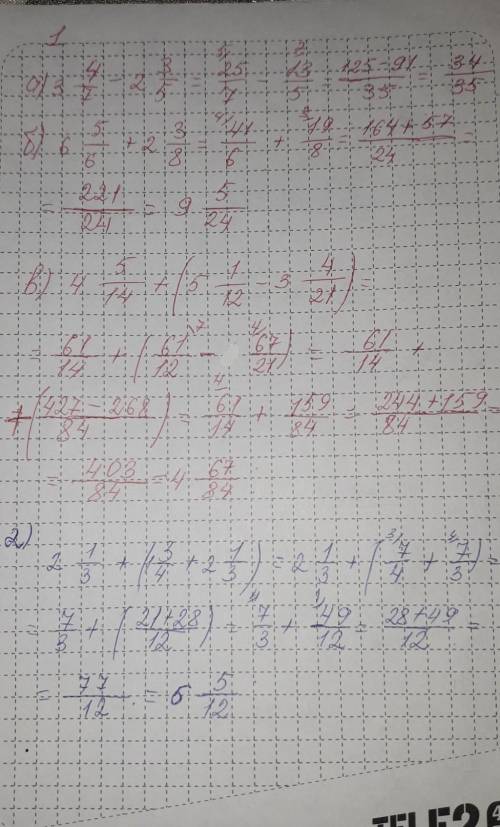 1
а) 3 4/7 - 2 3/5 = 25/7 - 13/5 = (125-91)/35 = 34/35
б) 6 5/6 + 2 3/8 = 41/6 + 19/8 = (164+57)/24 =
= 221/24 = 9 5/24
в) 4 5/14 + (5 1/12 - 3 4/21) =
= 61/14 + (61/12 - 67/21) = 61/14 +
+ (427-268)/84) = 61/14 + 159/84 = (244+159)/84 =
= 403/84 = 4 67/84
2)
2 1/3 + (1 3/4 + 2 1/3) = 2 1/3 + (7/4 + 7/3) =
= 7/3 + (21+28)/12) = 7/3 + 49/12 = (28+49)/12 =
= 77/12 = 6 5/12
TELE2